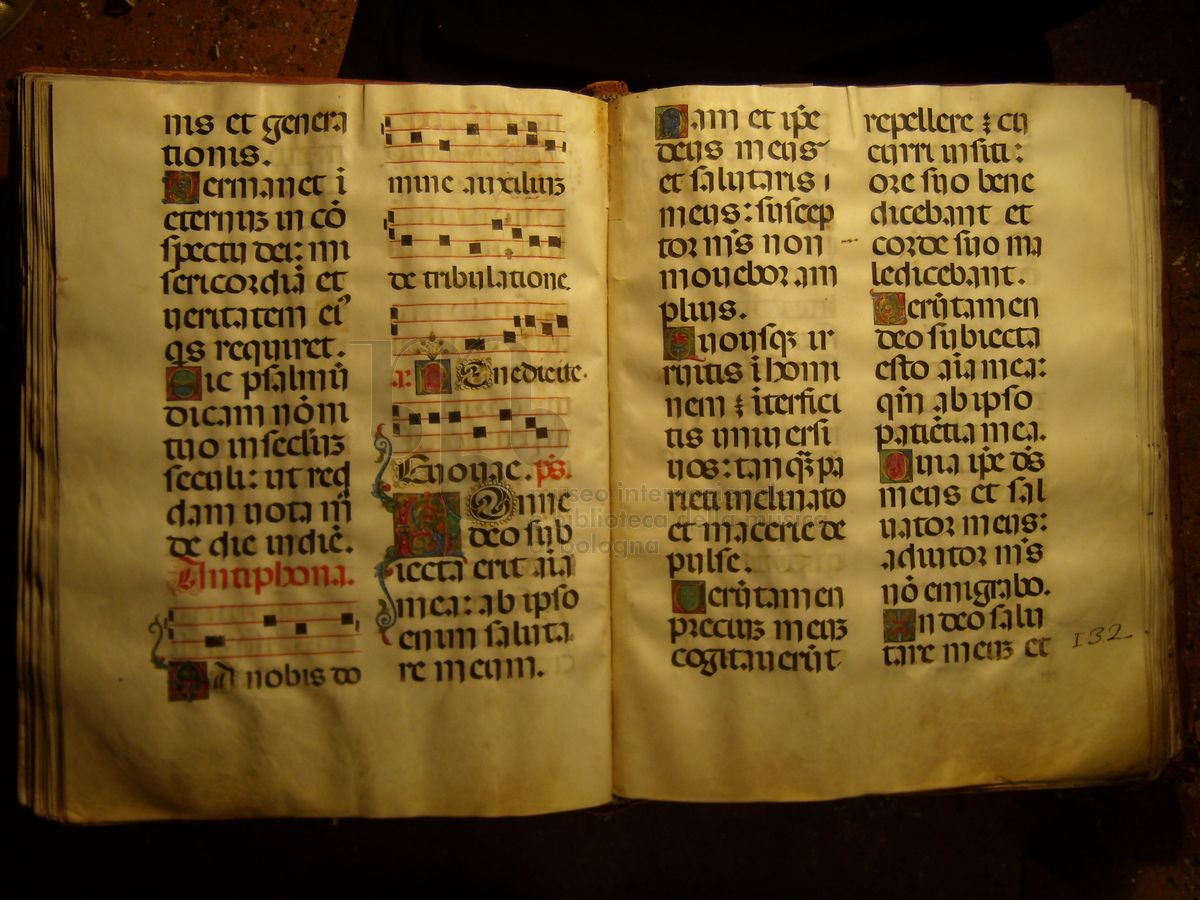 nis et genera
tionis.
Permanet ī
eternuz in cō
spectu dei: mi
sericordiā et
ueritatem eiꝰ
qs requiret.
Sic psalmū
dicam nōini
tuo in seclꝫ
seculi: ut red
dam uota m̄
de die in diē.
Antiphona.
DA nobis do
mine auxiliuz
de tribulatione.
a: BEnedicite.
Euouae. ps.
NOnne
deo sub
iecta erit aīa
mea: ab ipso
enim saluta
re meum.
Nam et ip̄e
deus meus
et salutaris
meus: suscep
tor m̄s non
mouebor am
plius.
Quousqꝫ ir
ruitis ī homi
nem ⁊ īterfici
tis uniuersi
uos: tanqꝫ pa
rieti inclinato
et macerie de
pulse.
Uerūtamen
preciuz meuz
cogitauerūt
repellere ⁊ cu
curri in siti:
ore suo bene
dicebant et
corde suo ma
ledicebant.
Uerūtamen
deo subiecta
esto aīa mea:
qm̄ ab ipso
patiētia mea.
Quia ip̄e d̄s
meus et sal
uator meus:
adiutor m̄s
nō emigrabo.
In deo salu
tare meuz et
132
museo internazionale
biblioteca della musica
di bologna